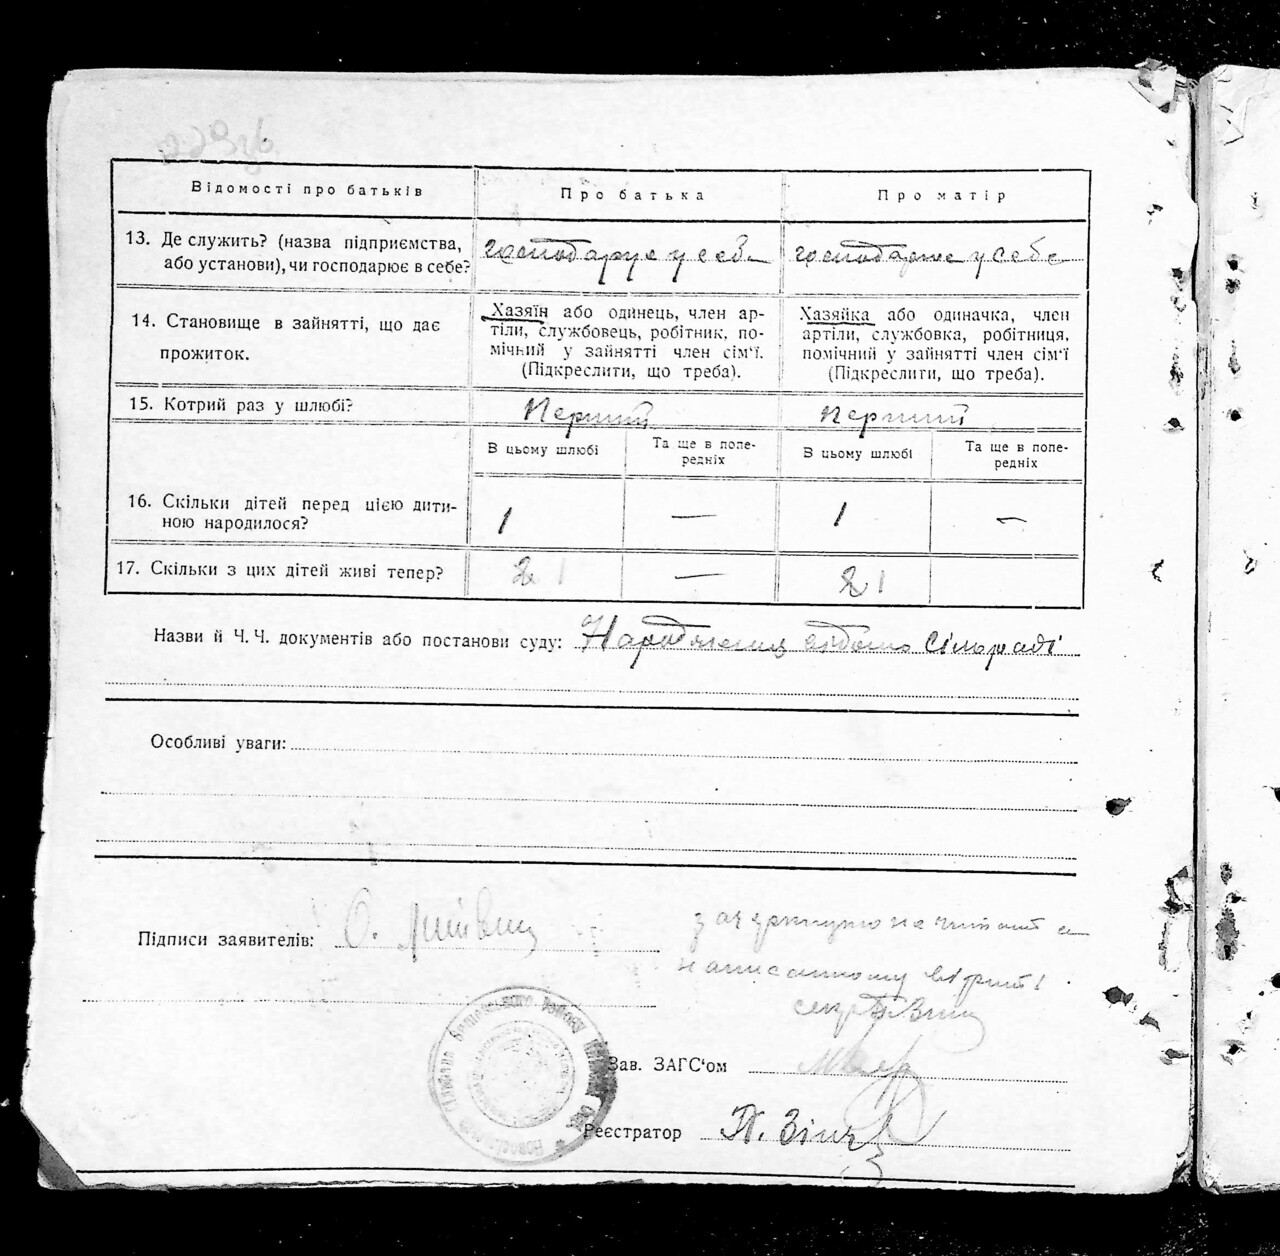 Відомості про батьків
Про батька
Про матір
13. Де служить? (назва підприємства,
або установи), чи господарює в себе?
господарує у себе
господарює у себе
14. Становище в зайнятті, що дає
прожиток.
Хазяїн або одинець, член ар-
тіли, службовець, робітник, по-
мічний у зайнятті член сім'ї.
(Підкреслити, що треба).
Хазяйка або одиначка, член
артіли, службовка, робітниця,
помічний у зайнятті член сім'ї
(Підкреслити, що треба).
15. Котрий раз у шлюбі?
Перший
перший
В цьому шлюбі
Та ще в попе-
редніх
В цьому шлюбі
Та ще в попе-
редніх
16. Скільки дітей перед цією дити-
ною народилося?
1
—
1
—
17. Скільки з цих дітей живі тепер?
2 1
—
2 1
Назви й Ч. Ч. документів або постанови суду: Народження відомо сільраді
Особливі уваги:
Підписи заявителів: О.
зачеркнуто не читат а
написанному вірити
секр
Зав. ЗАГС'ом
Реєстратор П.